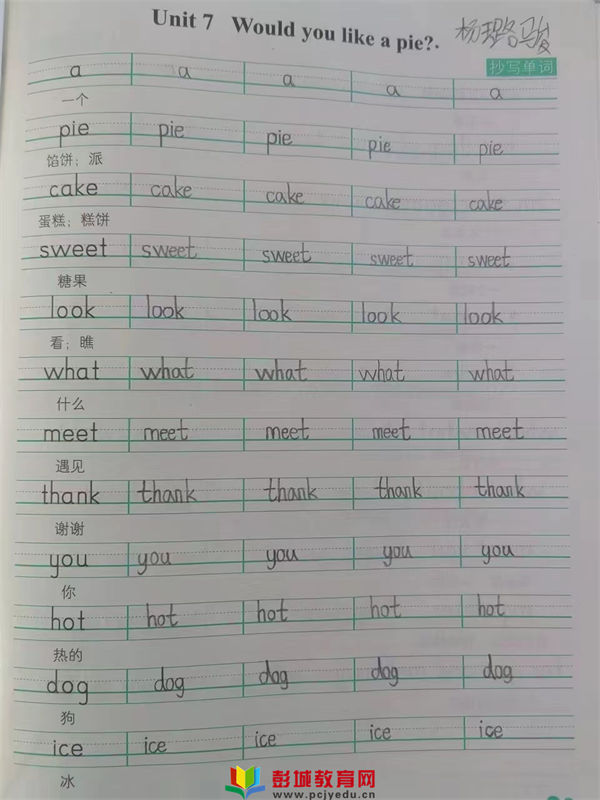 Unit 7 Would you like a pie?.
抄写单词
a a a a a
一个
pie pie pie pie pie
馅饼；派
cake cake cake cake cake
蛋糕；糕饼
sweet sweet sweet sweet sweet
糖果
look look look look look
看；瞧
what what what what what
什么
meet meet meet meet meet
遇见
thank thank thank thank thank
谢谢
you you you you you
你
hot hot hot hot hot
热的
dog dog dog dog dog
狗
ice ice ice ice ice
冰
彭城教育网
www.pcjyedu.cn